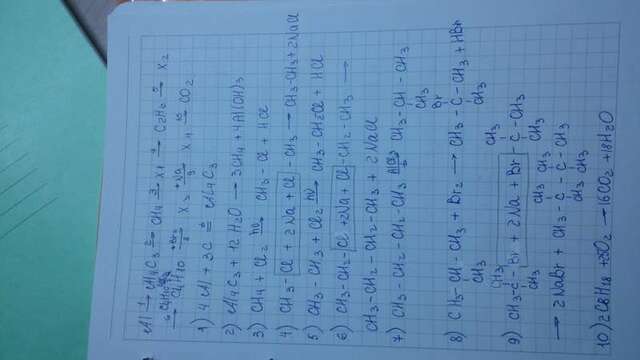 Al 1→ Al4C3 2→ CH4 3→ X1 4→ C2H6 5→ X2
6→ C4H10 7→ C4H10 +Br2 8→ X3 +Na 9→ X4 10→ CO2
1) 4Al + 3C t→ Al4C3
2) Al4C3 + 12H2O → 3CH4 + 4Al(OH)3
3) CH4 + Cl2 hν→ CH3-Cl + HCl
4) CH3-Cl + 2Na + Cl-CH3 → CH3-CH3 + 2NaCl
5) CH3-CH3 + Cl2 hν→ CH3-CH2Cl + HCl
6) CH3-CH2-Cl + 2Na + Cl-CH2-CH3 →
CH3-CH2-CH2-CH3 + 2NaCl
7) CH3-CH2-CH2-CH3 AlCl3 t→ CH3-CH-CH3
CH3
Br
8) CH3-CH-CH3 + Br2 → CH3-C-CH3 + HBr
CH3 CH3
CH3 CH3
9) CH3-C-Br + 2Na + Br-C-CH3
CH3 CH3
CH3 CH3
→ 2NaBr + CH3-C-C-CH3
CH3 CH3
10) 2C8H18 + 25O2 → 16CO2 + 18H2O